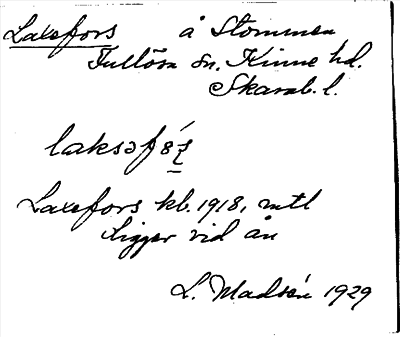 Laxefors å Stommen
Fullösa sn. Kinne hd.
Skarab. l.
laksəf
Laxefors kb. 1918, mtl
Ligger vid ån
L. Madsén 1929